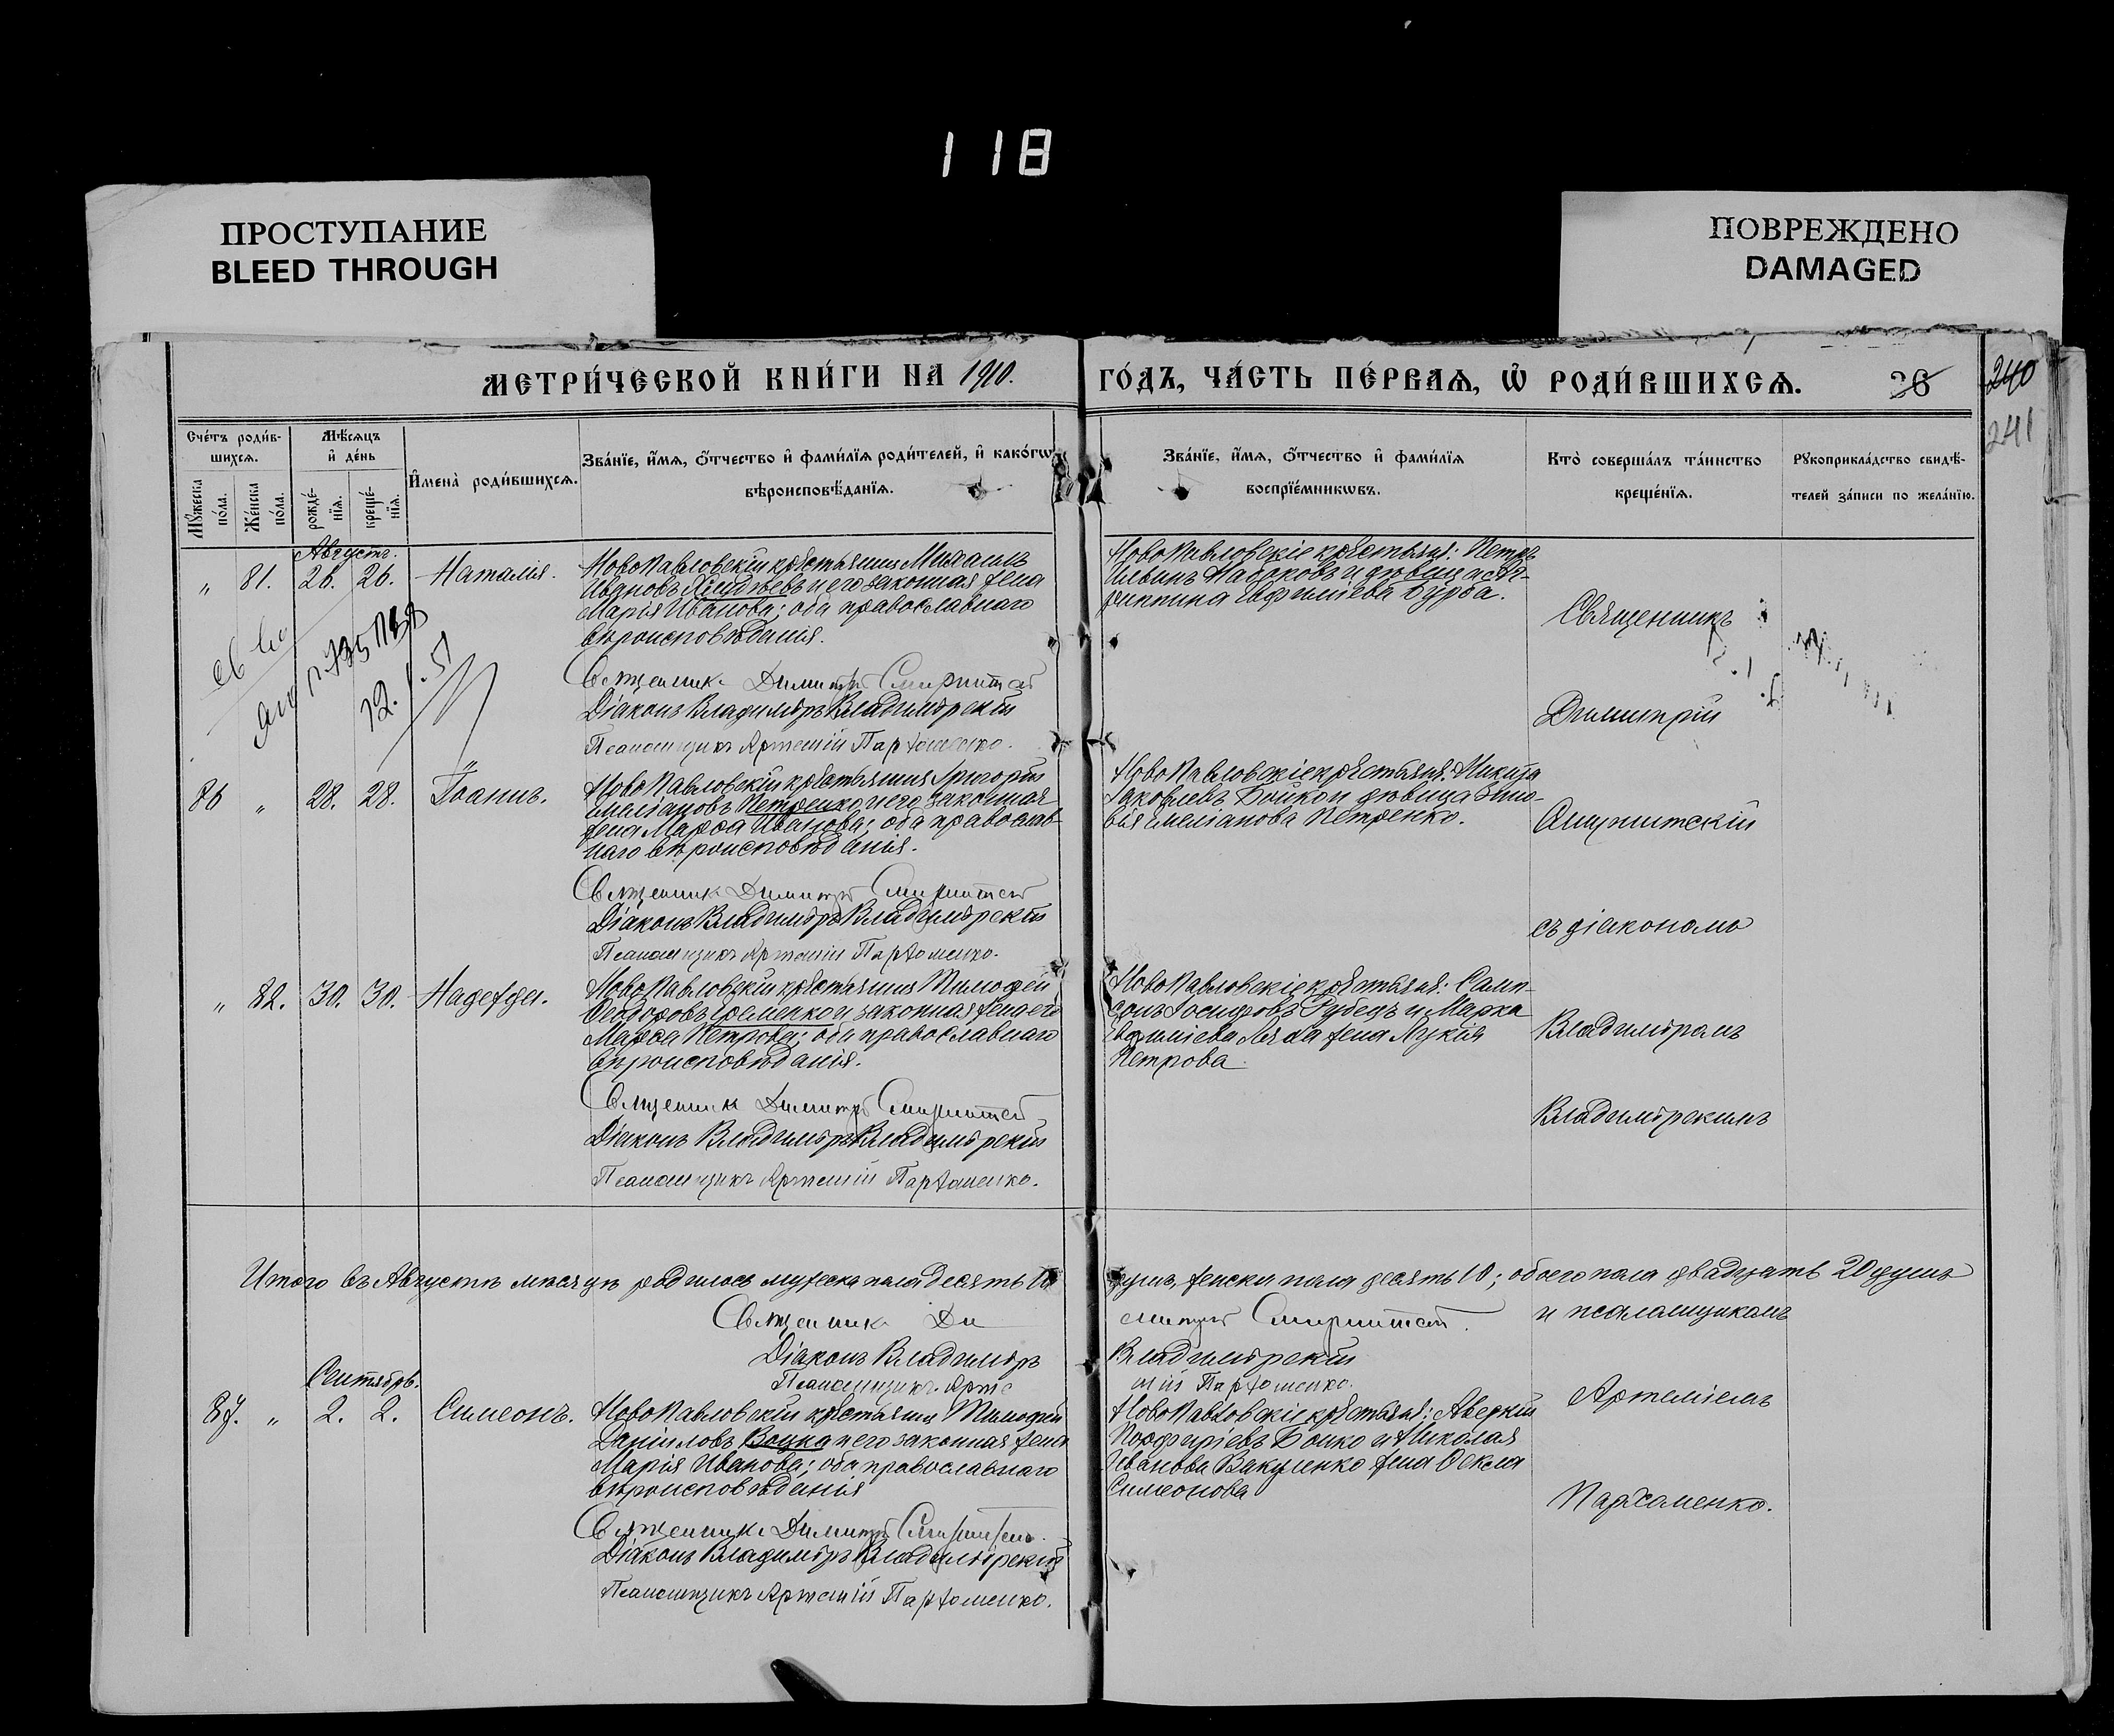 118
ПРОСТУПАНИЕ
BLEED THROUGH
ПОВРЕЖДЕНО
DAMAGED
МЕТРИ́ЧЕСКОЙ КНИ́ГИ НА 1910.
ГО́ДЪ, ЧА́СТЬ ПЕ́РВАѦ, Ѡ҆ РОДИ́ВШИХСѦ.
26
240
241
Сче́тъ роди́в-
шихсѧ.
Мꙋ́жеска
по́ла.
Же́нска
по́ла.
Мѣ́сѧцъ
и҆ де́нь
рожде́-
нїѧ.
креще́-
нїѧ.
И҆мена̀ роди́вшихсѧ.
Зва́нїе, и҆́мѧ, ѻ҆́тчество и҆ фами́лїѧ роди́телей, и҆ како́гѡ
вѣроисповѣ́данїѧ.
Зва́нїе, и҆́мѧ, ѻ҆́тчество и҆ фами́лїѧ
воспрїе́мникѡвъ.
Кто̀ соверша́лъ та́инство
креще́нїѧ.
Рꙋкоприкла́дство свидѣ́-
телей за́писи по жела́нїю.
Августъ.
„ 81. 26. 26. Наталія.
НовоПавловскій крестьянинъ Михаилъ
Ивановъ и его законная жена
Марія Иванова; оба православнаго
вѣроисповѣданія.
Священникъ Димитрій
Діаконъ Владиміръ Владимірскій
Псаломщикъ Артемій Пархоменко.
НовоПавловскіе крестьяне: Петръ
Ильинъ и дѣвица Аг-
риппина Евфиміева Бурба.
Священникъ
Димитрій
12. 1. 51
86 „ 28. 28. Іоаннъ.
НовоПавловскій крестьянинъ Григорій
Емеліановъ Петренко и его законная
жена Марѳа Иванова; оба православ-
наго вѣроисповѣданія.
Священникъ Димитрій
Діаконъ Владиміръ Владимірскій
Псаломщикъ Артемій Пархоменко.
НовоПавловскіе крестьяне: Никита
Іаковлевъ Бойко и дѣвица Зино-
вія Емеліанова Петренко.
съ діакономъ
„ 82. 30. 30. Надежда.
НовоПавловскій крестьянинъ Тимоѳей
Ѳеодоровъ Еременко и законная жена его
Марѳа Петрова; оба православнаго
вѣроисповѣданія.
Священникъ Димитрій
Діаконъ Владиміръ Владимірскій
Псаломщикъ Артемій Пархоменко.
НовоПавловскіе крестьяне: Самп-
сонъ Іосифовъ Рубецъ и Марка
жена Лукія
Петрова
Владиміромъ
Владимірскимъ
Итого въ Августѣ мѣсяцѣ родилось мужеска пола десять 10
душъ, женска пола десять 10; обоего пола двадцать 20 душъ
Священникъ Ди
митрій
и псаломщикомъ
Діаконъ Владиміръ
Владимірскій
Псаломщикъ Арте
мій Пархоменко.
Артеміемъ
Сентябрь.
87. „ 2. 2. Симеонъ.
НовоПавловскій крестьянинъ Тимоѳей
Даніиловъ Воцко и его законная жена
Марія Иванова; оба православнаго
вѣроисповѣданія
Священникъ Димитрій
Діаконъ Владиміръ Владимірскій
Псаломщикъ Артемій Пархоменко.
НовоПавловскіе крестьяне: Аверкій
Порфиріевъ Бойко и Николая
Иванова Вакуленко жена Ѳекла
Симеонова
Пархоменко.